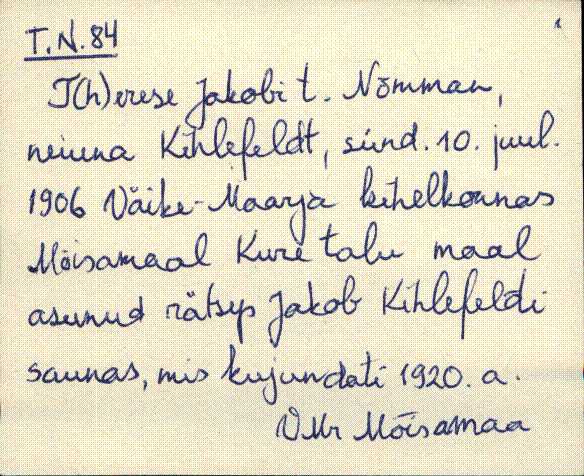 T.N.84
T(h)erese Jakobi t. Nõmman,
neiuna Kihlefeldt, sünd. 10. juul.
1906 Väike-Maarja kihelkonnas
Mõisamaal Kure talu maal
asunud rätsep Jakob Kihlefeldi
saunas, mis kujundati 1920. a.
VMr Mõisamaa